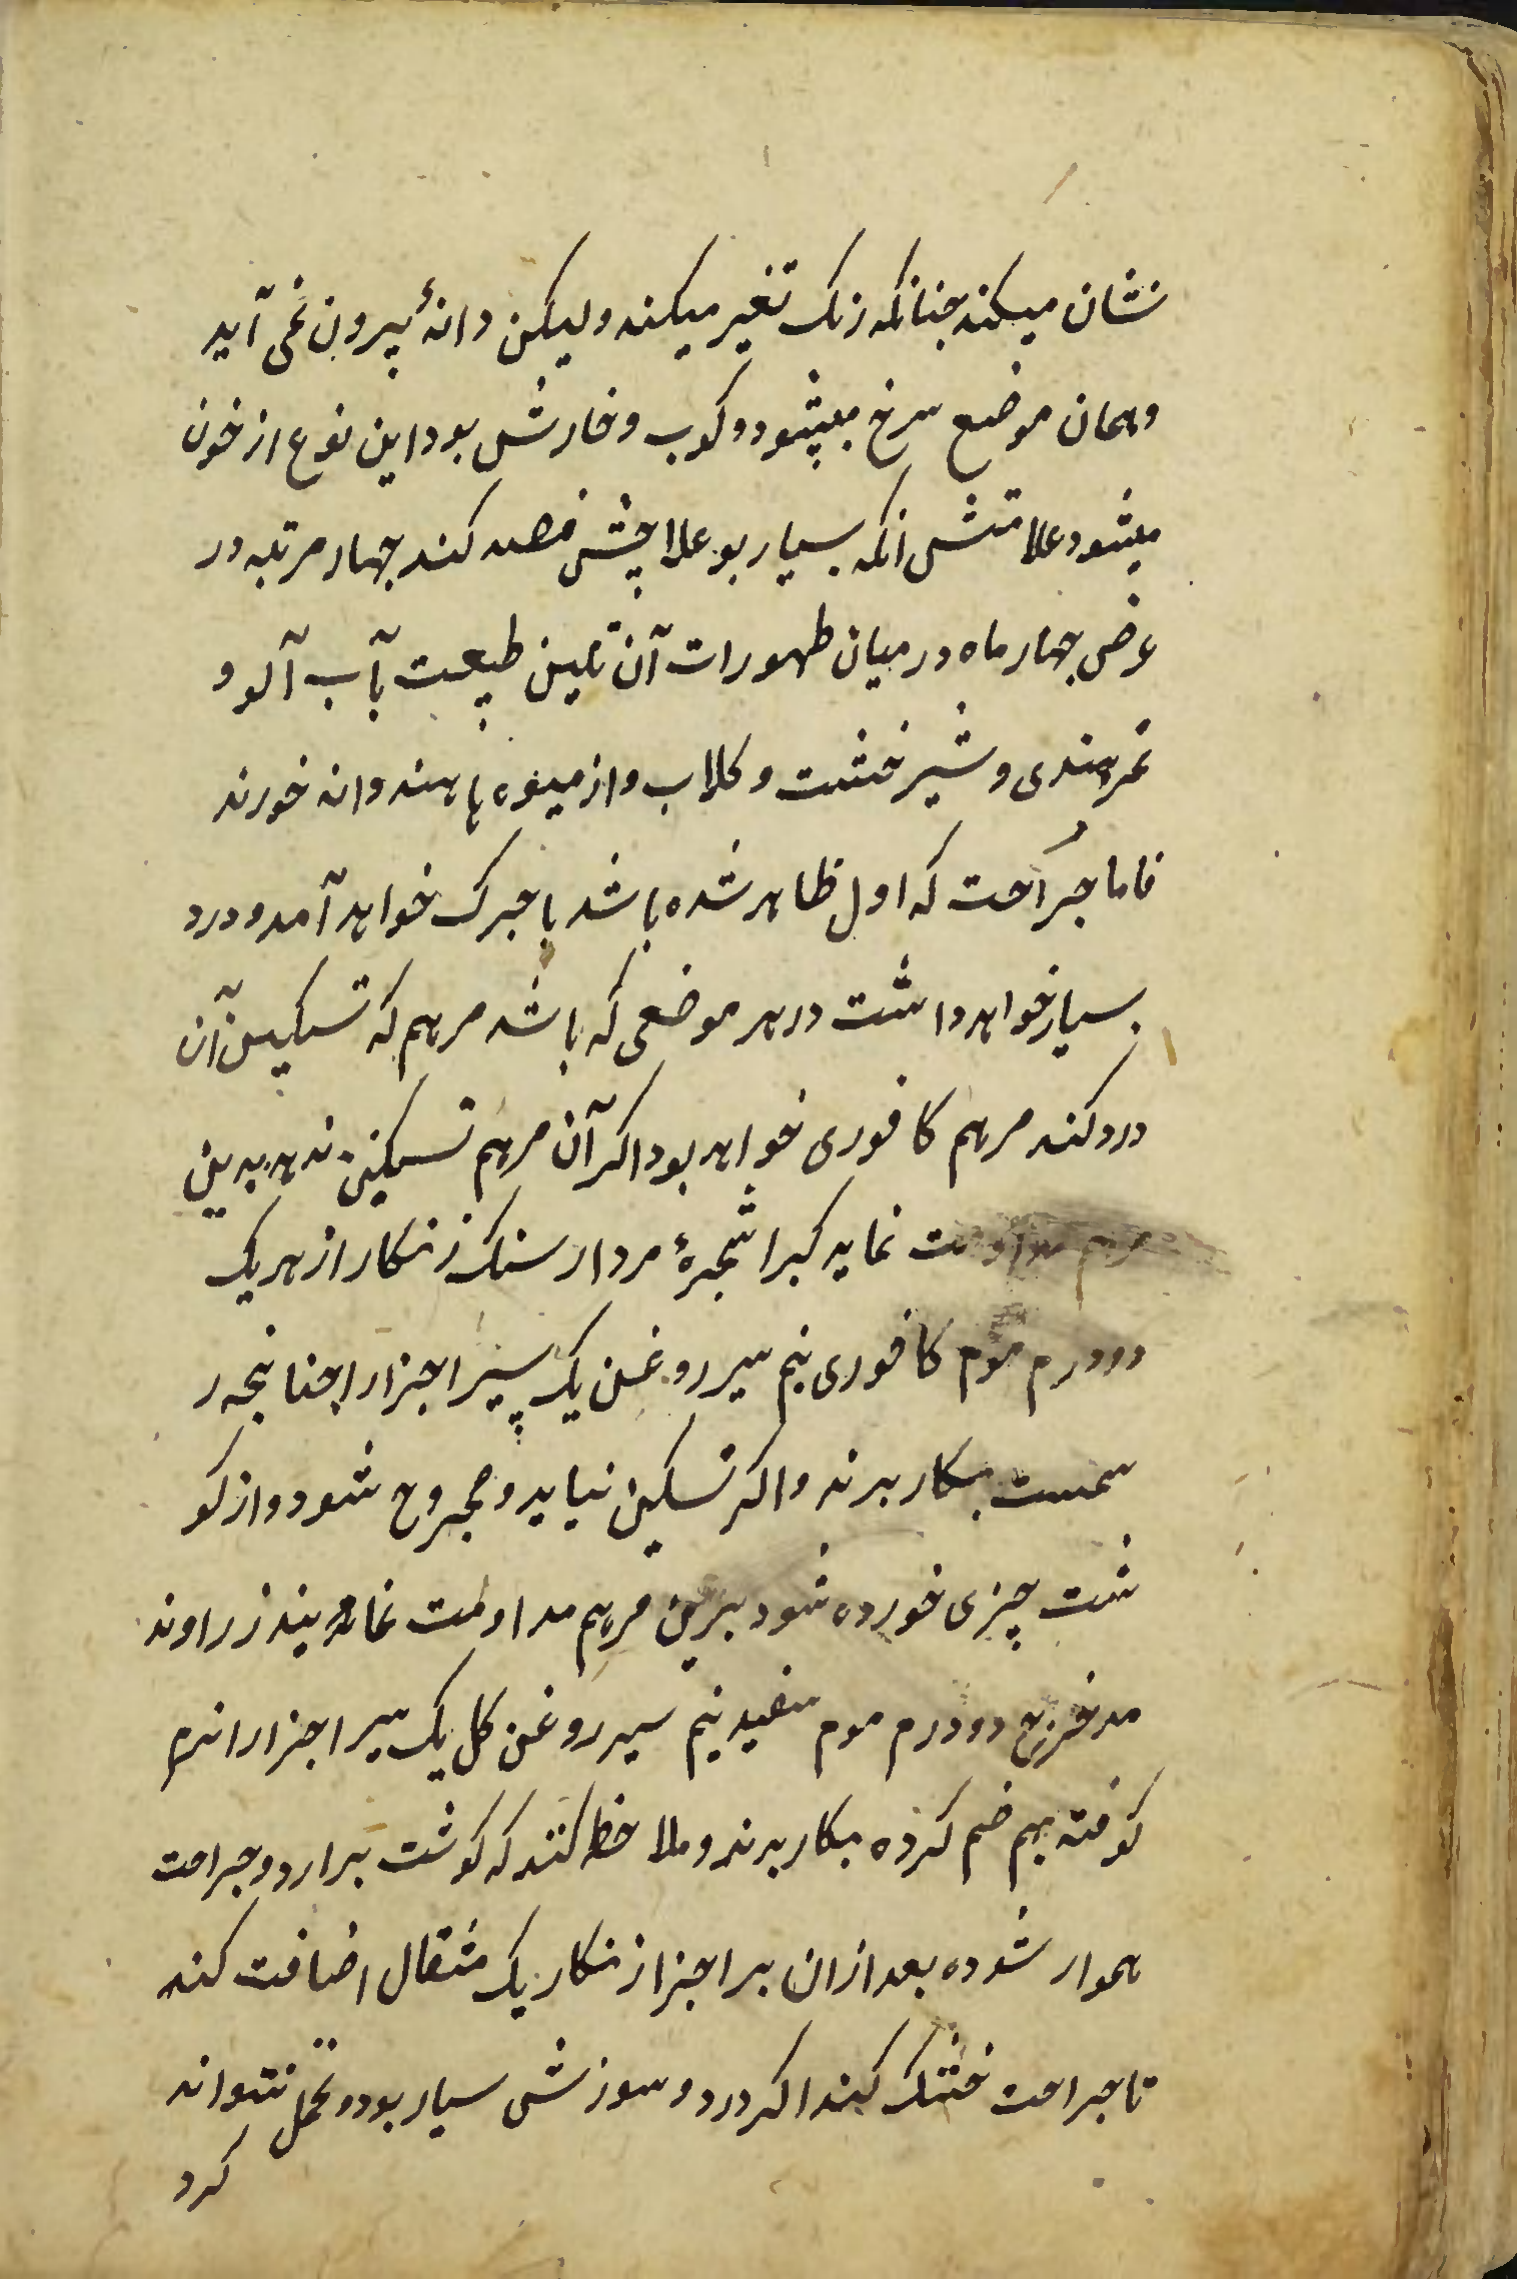 نشان میکند چنانکه رنک تغیر میکند ولیکن دانهٔ بیرون نمی آید
وهمان موضع سرخ میشود وکوب وخارش بود این نوع از خون
میشود علامتش انکه بسیار بو علاجش فصد کند چهار مرتبه در
عرض چهار ماه در میان ظهورات آن تلین طبیعت بآب آلو و
تمر هندی و شیرخشت وکلاب واز میوه ها هندوانه خورند
فاما جراحت که اول ظاهر شده باشد با چرک خواهد آمد ودرد
بسیار خواهد داشت در هر موضعی که باشد مرهم که تسکین آن
درد کند مرهم کافوری خواهد بود اکر آن مرهم تسکین ندهد بدین
مرهم مداومت نماید کبرا شجرهٔ مردار سنک زنکار از هر یک
دودرم موم کافوری نیم سیر روغن یک سیر اجزار اچنانچه ر
سمست بکار برند واکر تسکین نیاید و مجروح شود واز کو
شت چیزی خورده شود برین مرهم مداومت نمایند زراوند
مدحرج دودرم موم سفید نیم سیر روغن کل یک سیر اجزارا نرم
کوفته بهم ضم کرده بکار برند وملاحظه کنند که کوشت برارد وجراحت
هموار شوده بعد ازان بر اجزا زنکار یک مثقال اضافت کند
تا جراحت خشک کند اکر درد و سوزش بسیار بود و تحمل نتواند
کرد